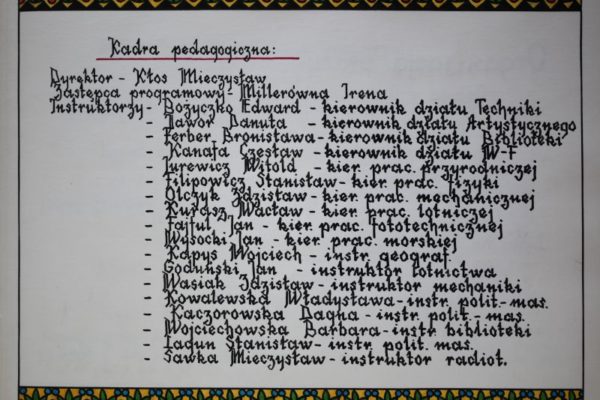 Kadra pedagogiczna:
Dyrektor - Kłos Mieczysław
Zastępca programowy - Millerówna Irena
Instruktorzy - Bożyczko Edward - kierownik działu Techniki
- Jawor Danuta - kierownik działu Artystycznego
- Ferber Bronisława - kierownik działu Biblioteki
- Kanafa Czesław - kierownik działu W-F
- Jurewicz Witold - kier. prac. przyrodniczej
- Filipowicz Stanisław - kier. prac. fizyki
- Olczyk Zdzisław - kier. prac. mechanicznej
- Kurasz Wacław - kier. prac. lotniczej
- Fajful Jan - kier. prac. fototechnicznej
- Wysocki Jan - kier. prac. morskiej
- Kapys Wojciech - instr. geograf.
- Goduński Jan - instruktor lotnictwa
- Wasiak Zdzisław - instruktor mechaniki
- Kowalewska Władysława - instr. polit. - mas.
- Kaczorowska Dagna - instr. polit. - mas.
- Wojciechowska Barbara - instr. biblioteki
- Łagun Stanisław - instr. polit. mas.
- Sawka Mieczysław - instruktor radiot.